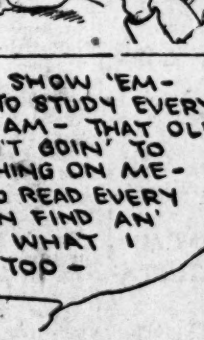 SHOW 'EM-
TO STUDY EVERY
AM- THAT OL
'T GOIN' TO
HING ON ME-
READ EVERY
N FIND AN'
WHAT I
TOO-